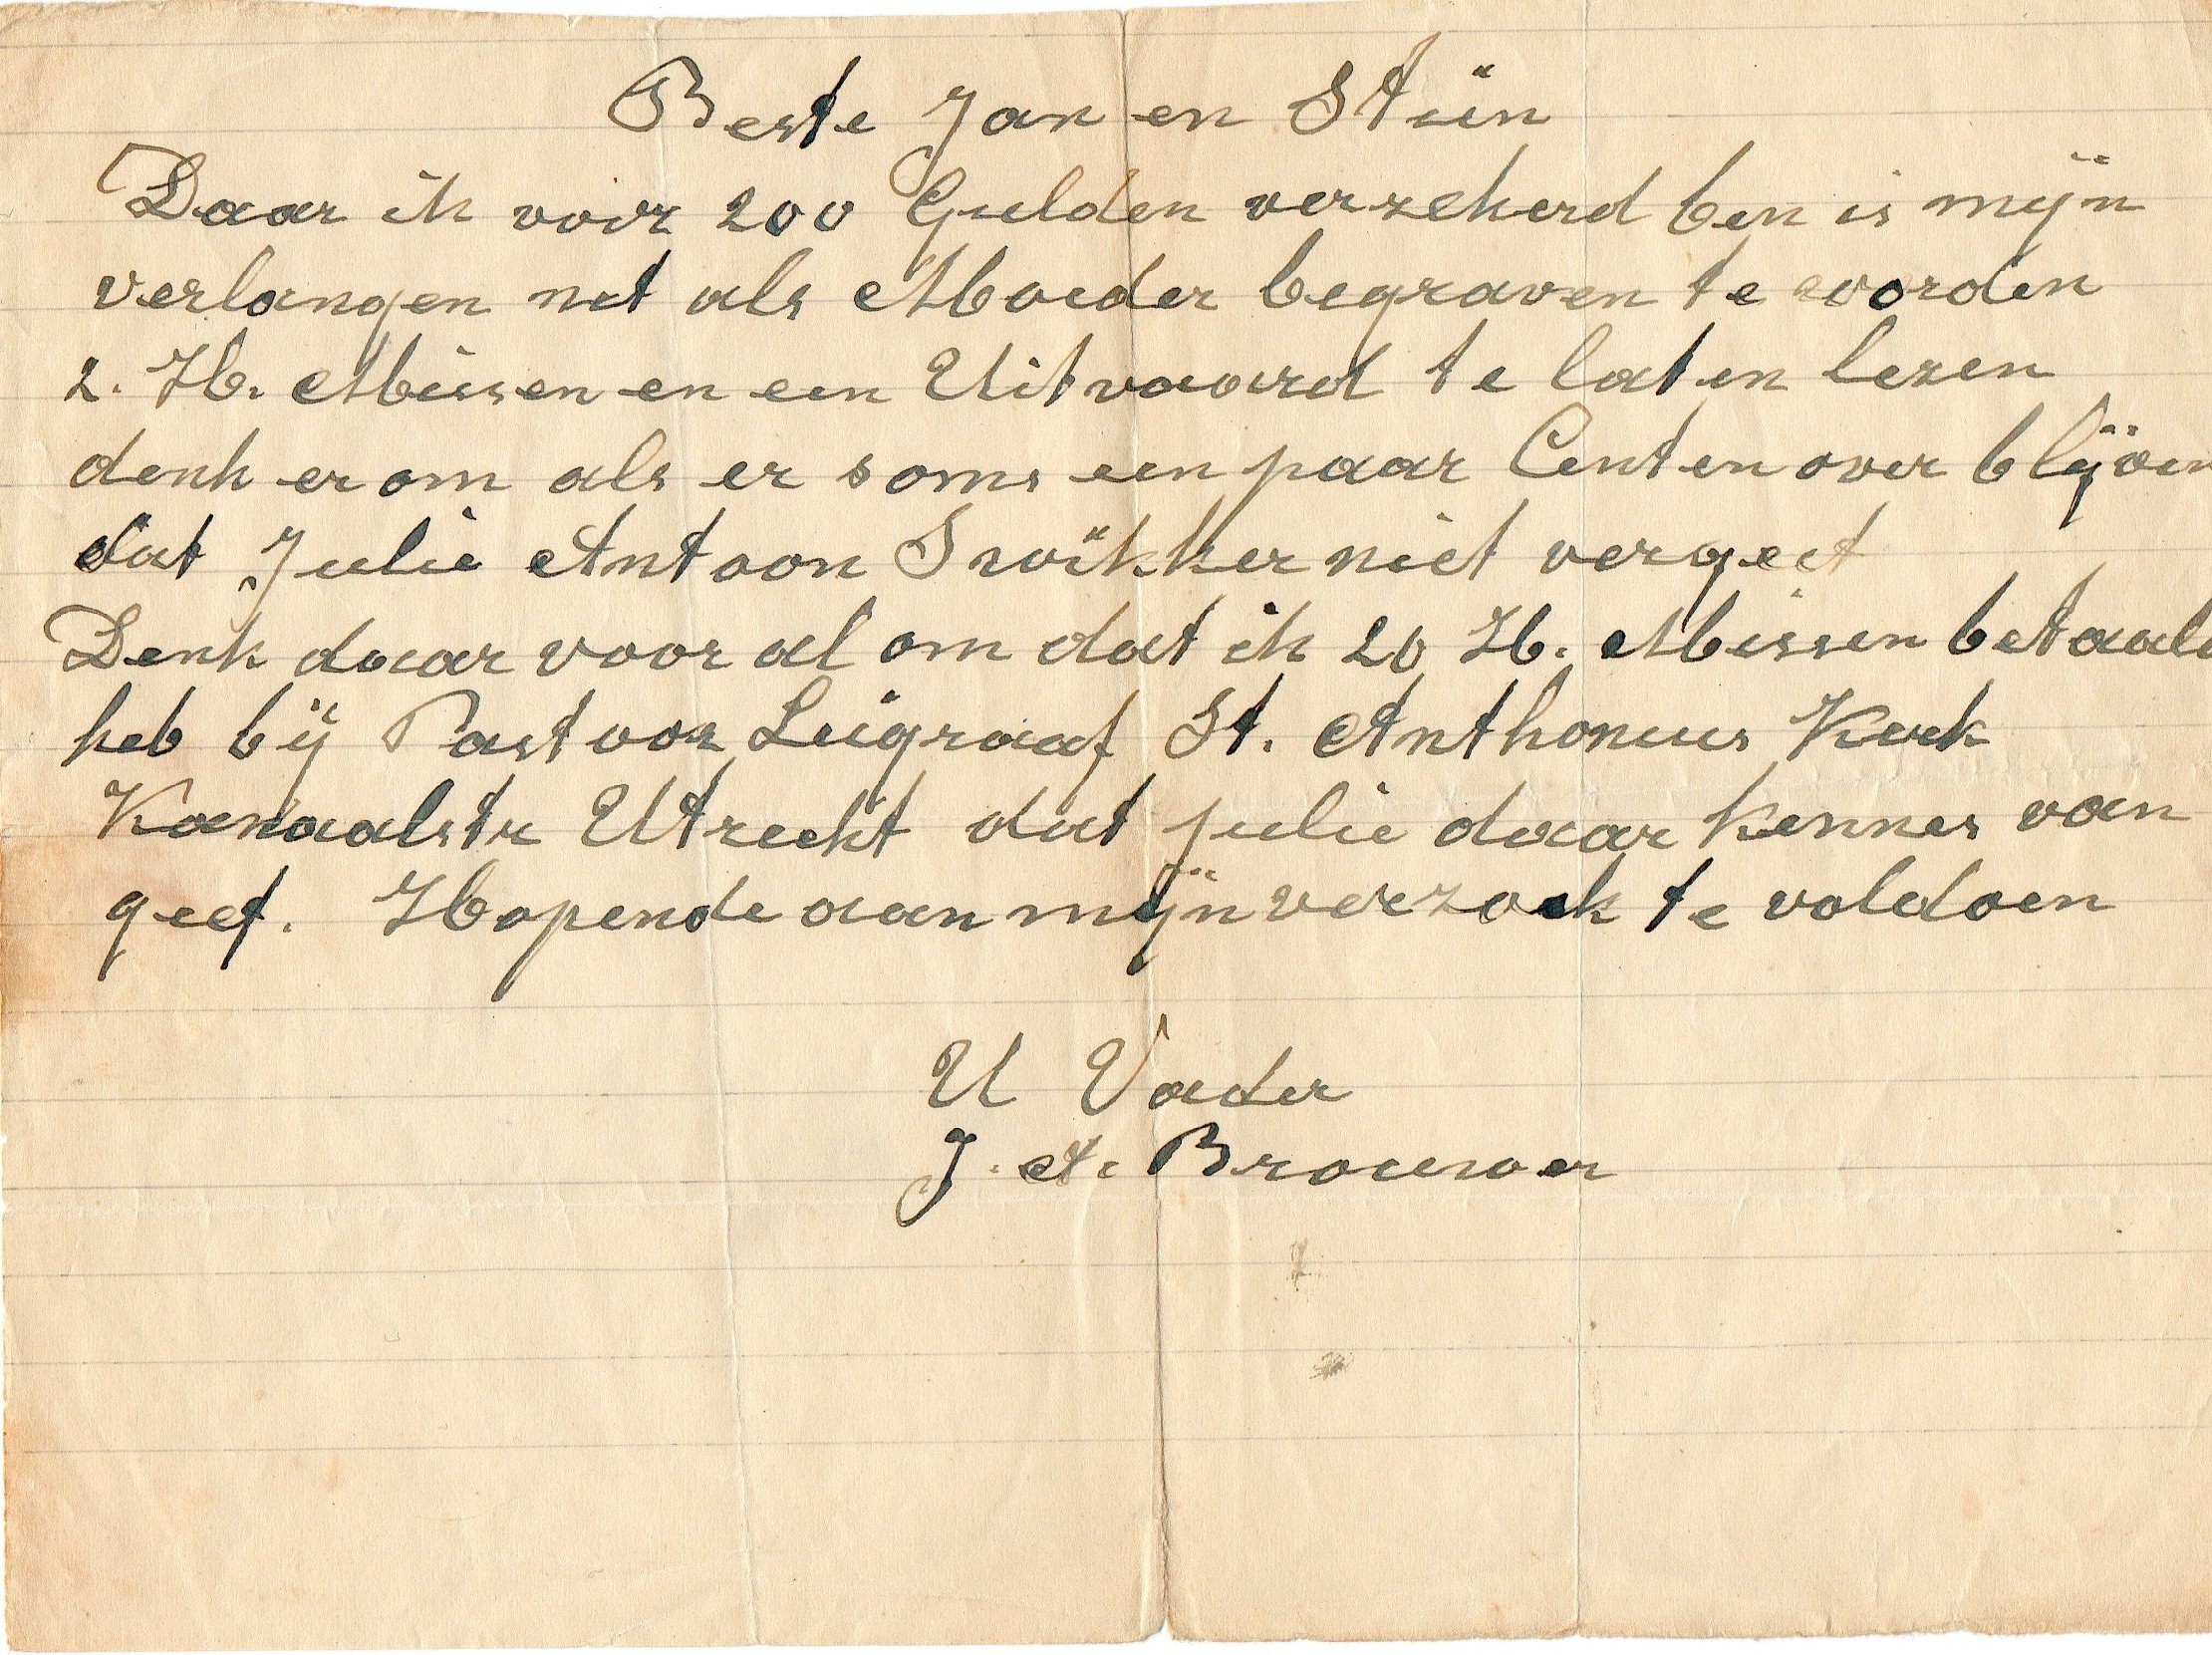 Beste Jan en Stien
Daar ik voor 200 Gulden verzekerd ben is mijn
verlangen net als Moeder begraven te worden
2. H. Missen en een Uitvaard te laten lezen
denk er om als er soms een paar Centen over blijven
dat Julie Antoon Swikker niet vergeet
Denk daar voor al om dat ik 20 H. Missen betaald
heb bij Pastoor Luigraaf St. Anthonius Kerk
Kanaalstr Utrecht dat julie daar kennes van
geef. Hopende aan mijn verzoek te voldoen
U Vader
J. A. Brouwer